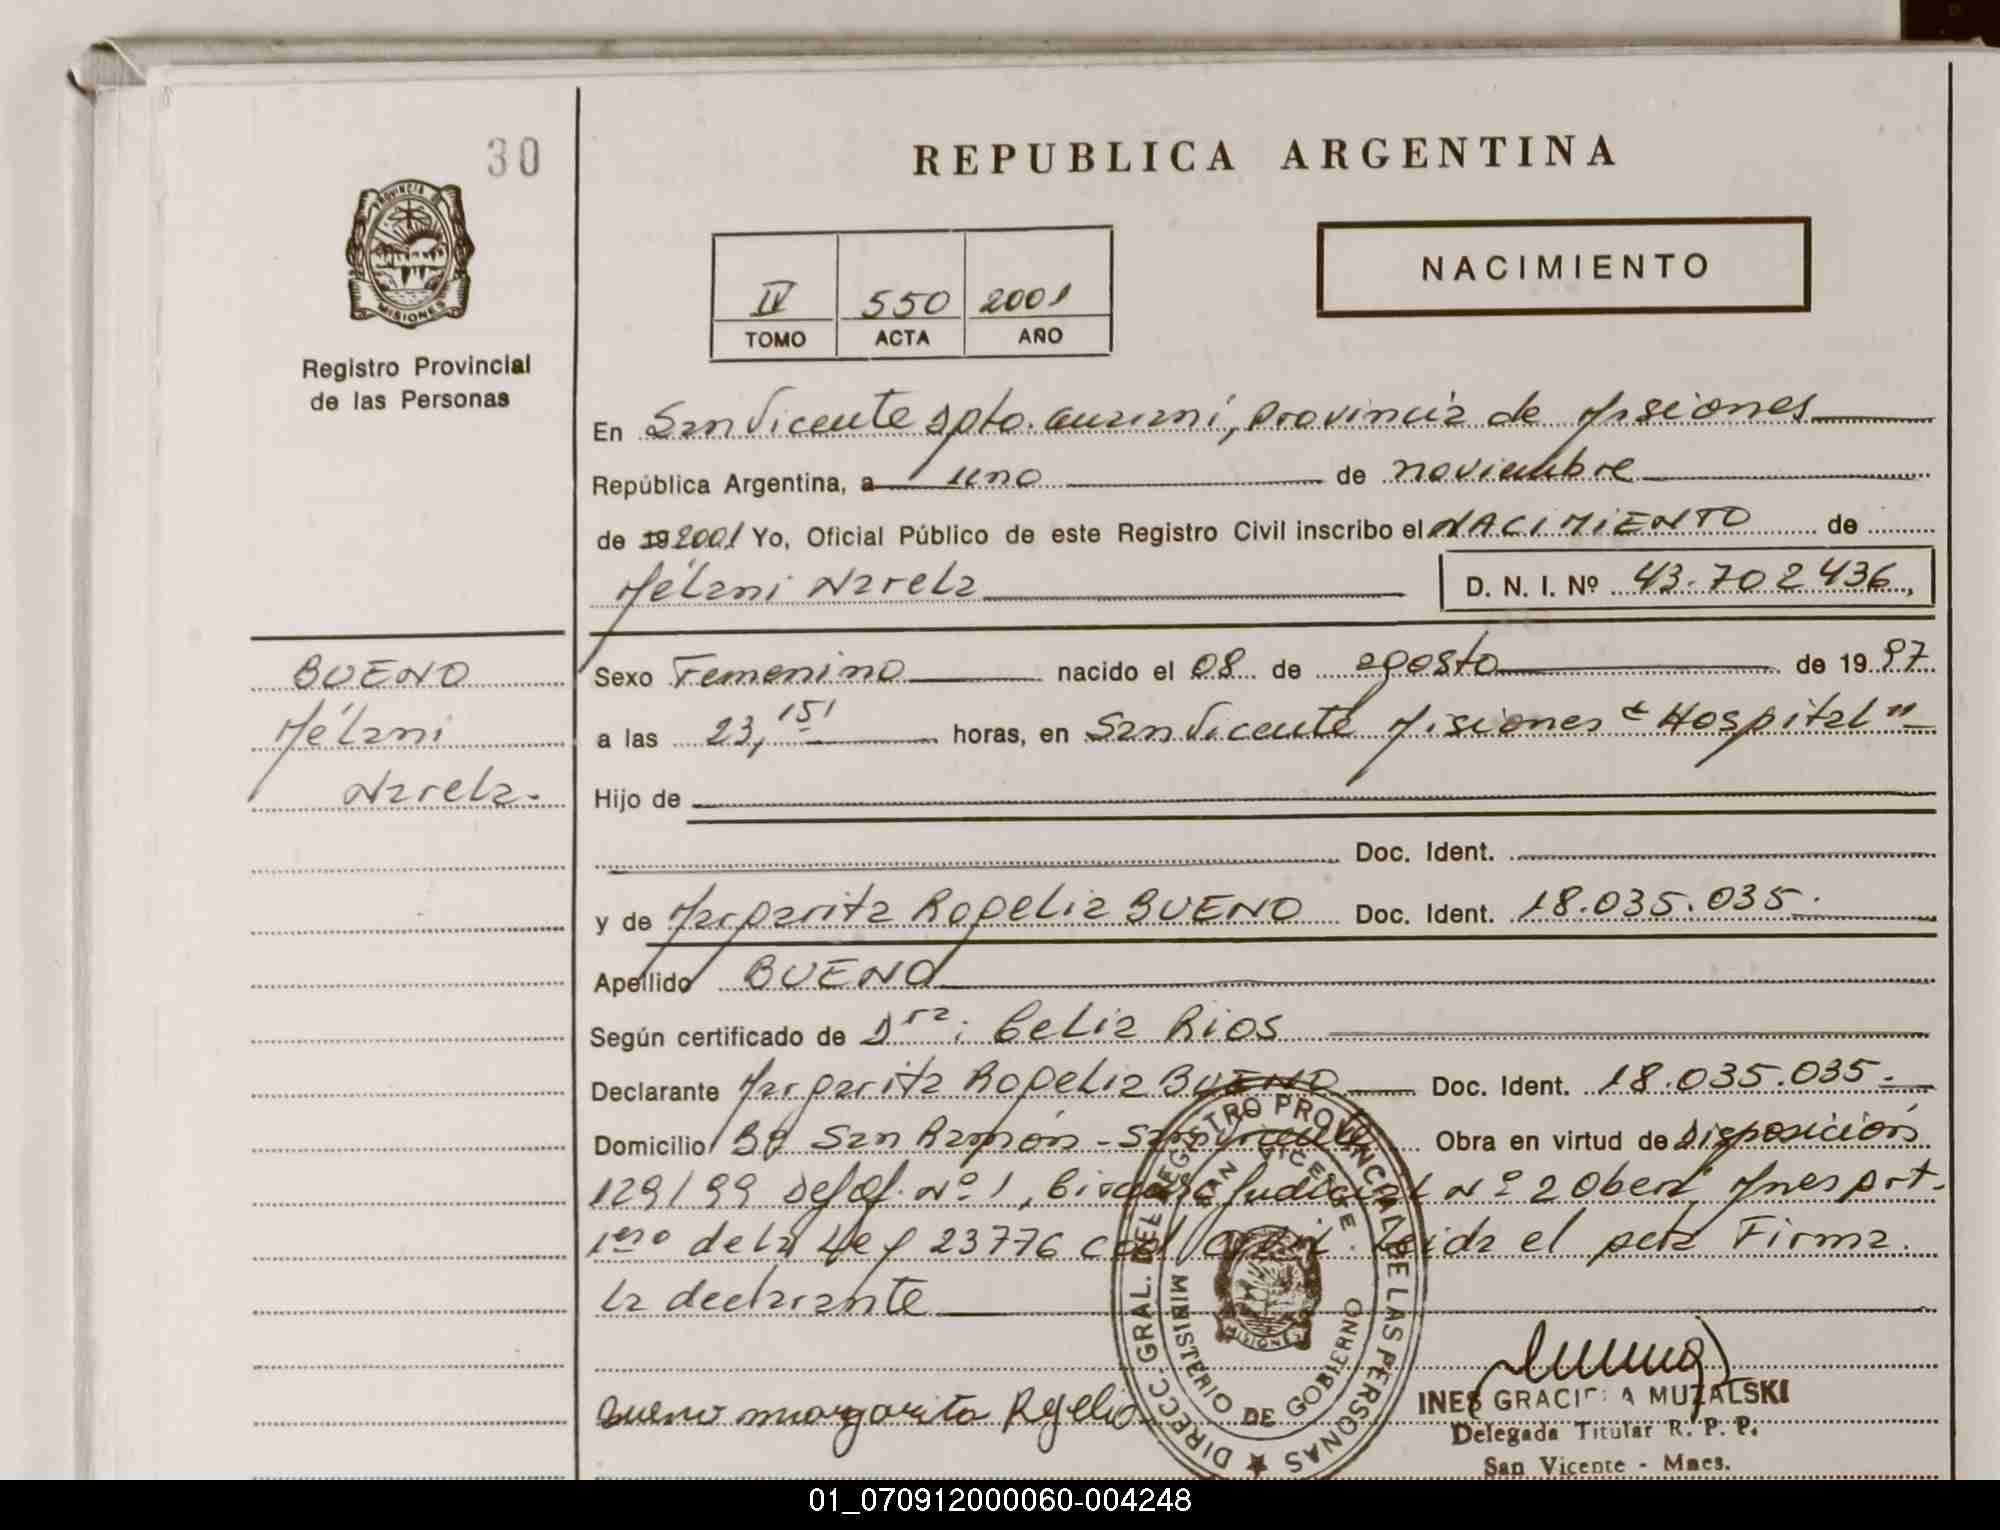 30
REPUBLICA ARGENTINA
PROVINCIA DE
MISIONES
IV 550 2001
TOMO ACTA AÑO
NACIMIENTO
Registro Provincial
de las Personas
En San Vicente Dpto. Guaraní, Provincia de Misiones
República Argentina, a uno de noviembre
de 19 2001 Yo, Oficial Público de este Registro Civil inscribo el NACIMIENTO de
Mélani Narela D. N. I. Nº 43.702436,
BUENO
Mélani
Narela-
Sexo Femenino nacido el 08 de agosto de 1997
a las 23,15' horas, en San Vicente Misiones "Hospital"
Hijo de
Doc. Ident.
y de Margarita Rogelia BUENO Doc. Ident. 18.035.035.
Apellido BUENO
Según certificado de Dra: Celia Rios
Declarante Margarita Rogelia BUENO Doc. Ident. 18.035.035.-
Domicilio Bº San Ramón - San Vicente Obra en virtud de Disposición
129/99 Def. Of. Nº 1, Judicial Nº 2 Oberá Mnes art.
1ero de la Ley 23776 Leida el acta Firma
la declarante
Bueno margarita Rogelia
DIRECC. GRAL. DEL REGISTRO PROVINCIAL DE LAS PERSONAS
SAN VICENTE
MISIONES
MINISTERIO DE GOBIERNO
INES GRACIELA MUZALSKI
Delegada Titular R. P. P.
San Vicente - Mnes.
01_070912000060-004248